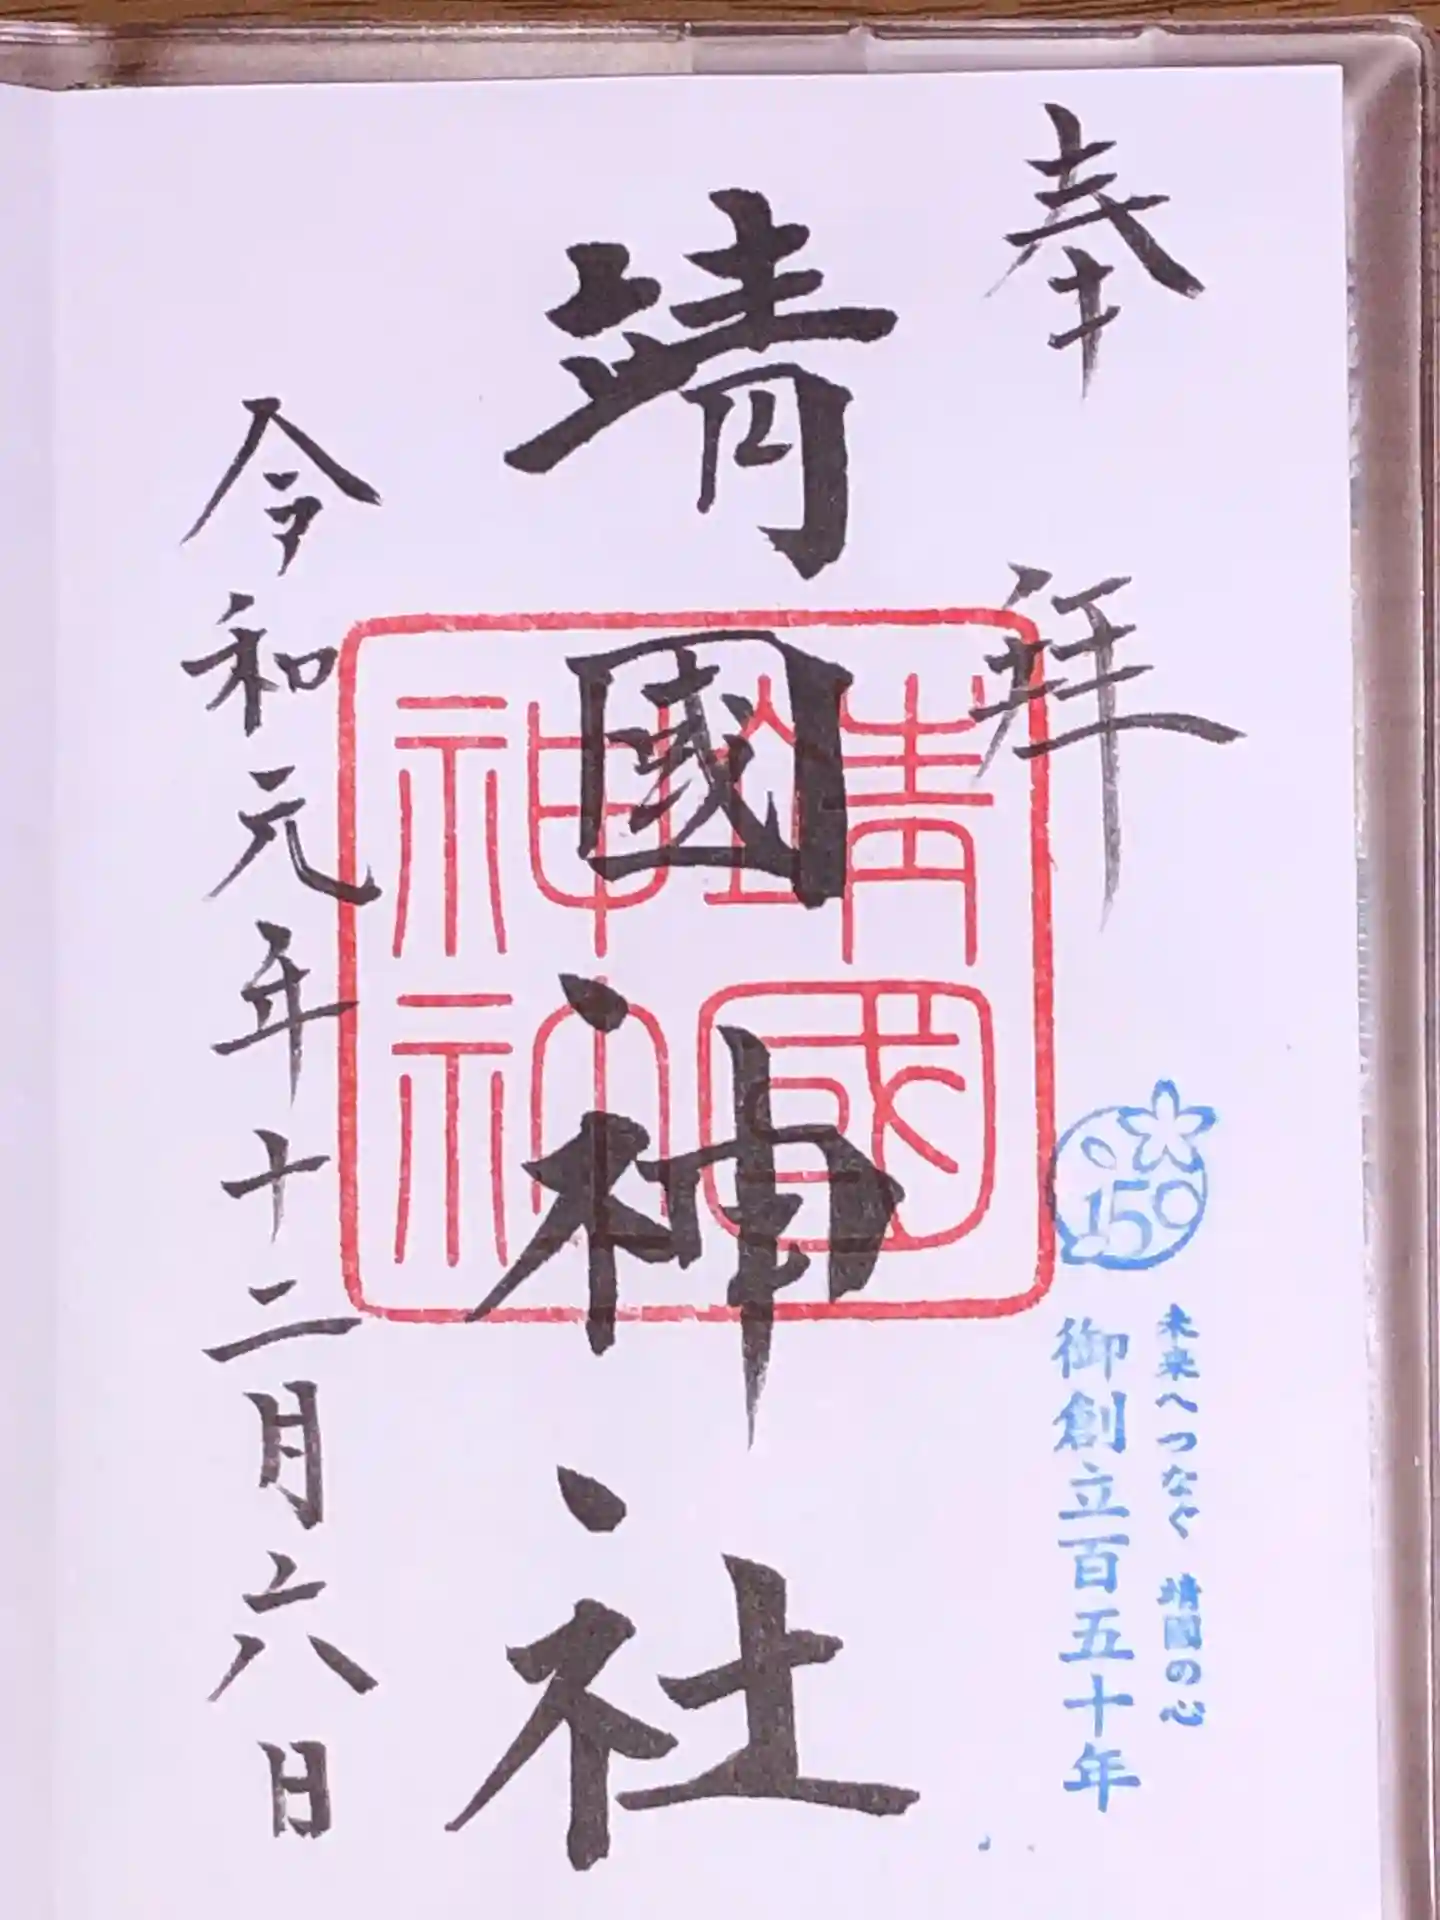 奉拝
150
未来へつなぐ 靖國の心
御創立百五十年
靖國神社
靖國神社
令和元年十二月六日